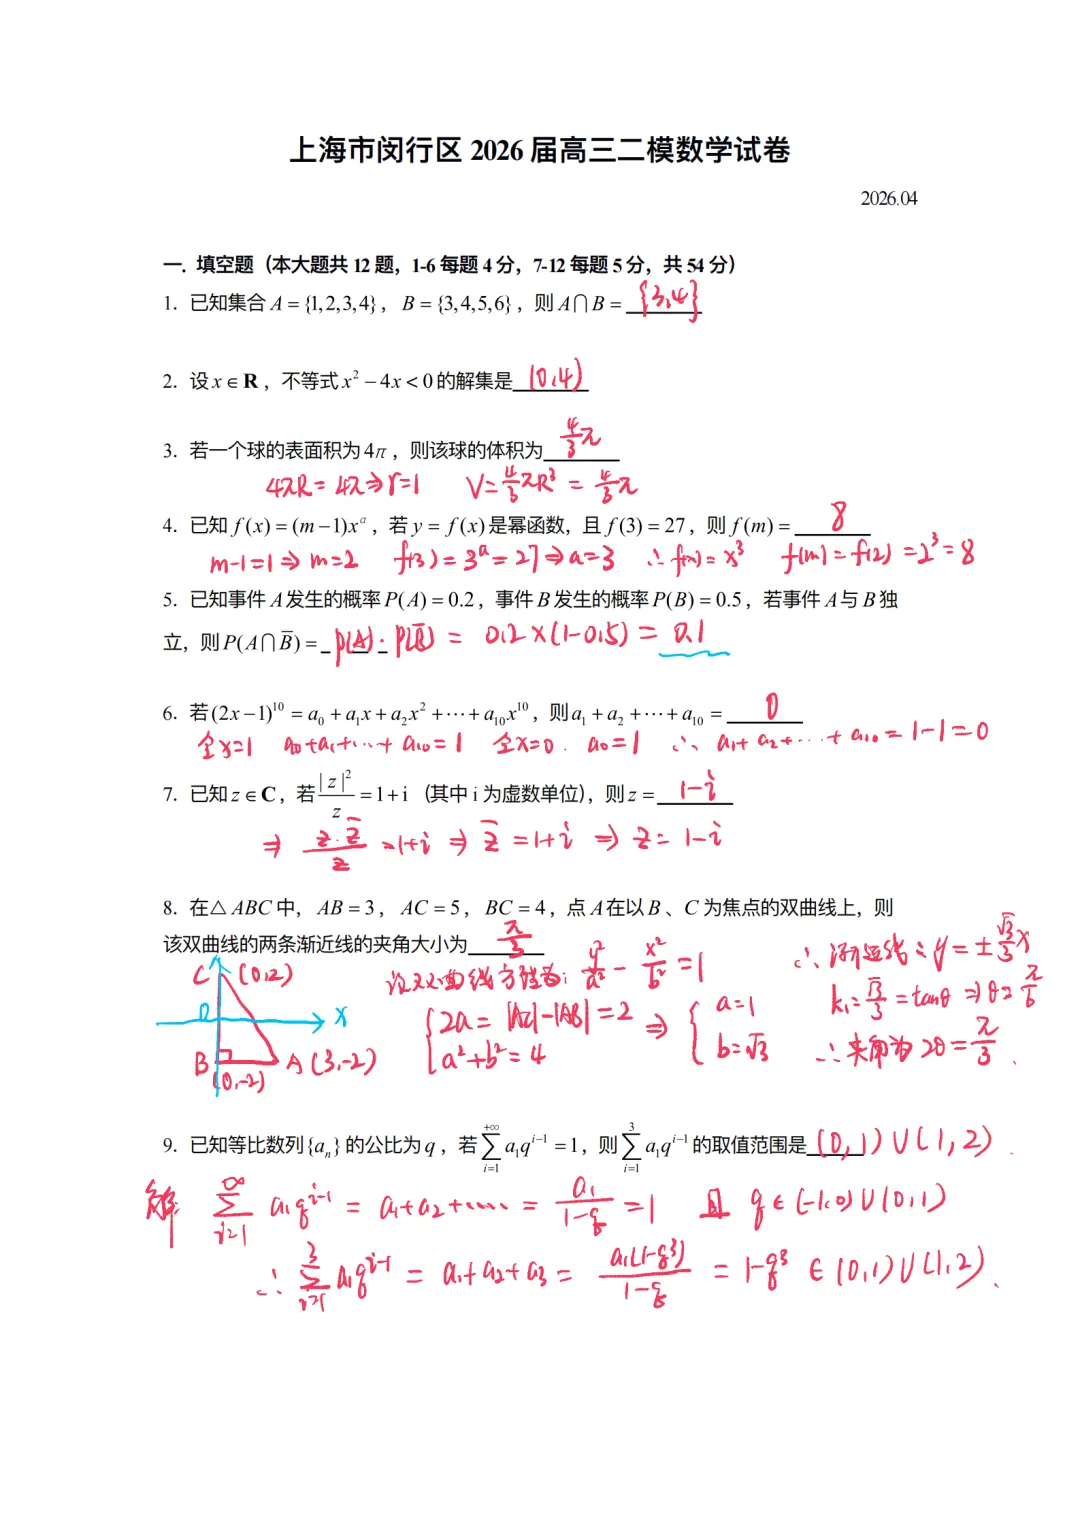 上海市闵行区 2026 届高三二模数学试卷
2026.04
一. 填空题（本大题共 12 题，1-6 每题 4 分，7-12 每题 5 分，共 54 分）
1. 已知集合 A = {1,2,3,4}，B = {3,4,5,6}，则 A∩B = {3,4}
2. 设 x∈R，不等式 x² − 4x < 0 的解集是 (0,4)
3. 若一个球的表面积为 4π，则该球的体积为 4/3 π
4πR = 4π ⇒ r=1  V = 4/3 πR³ = 4/3 π
4. 已知 f(x) = (m−1)x^a，若 y = f(x) 是幂函数，且 f(3) = 27，则 f(m) = 8
m-1=1 ⇒ m=2  f(3) = 3^a = 27 ⇒ a=3  ∴ f(x) = x³  f(m) = f(2) = 2³ = 8
5. 已知事件 A 发生的概率 P(A) = 0.2，事件 B 发生的概率 P(B) = 0.5，若事件 A 与 B 独
立，则 P(A∩B̄) = P(A)·P(B̄) = 0.2×(1-0.5) = 0.1
6. 若 (2x−1)¹⁰ = a₀ + a₁x + a₂x² + ⋯ + a₁₀x¹⁰，则 a₁ + a₂ + ⋯ + a₁₀ = 0
令x=1  a₀+a₁+⋯+a₁₀ = 1  令x=0. a₀=1  ∴ a₁+a₂+⋯+a₁₀ = 1-1=0
7. 已知 z∈C，若 |z|²/z = 1+i （其中 i 为虚数单位），则 z = 1-i
⇒ z·z̄/z = 1+i ⇒ z̄ = 1+i ⇒ z = 1-i
8. 在△ABC 中，AB = 3，AC = 5，BC = 4，点 A 在以 B、C 为焦点的双曲线上，则
该双曲线的两条渐近线的夹角大小为 π/3
C (0,2)
O x
B (0,-2) A (3,-2)
设双曲线方程为: y²/a² − x²/b² = 1
{2a = |AC|-|AB| = 2
a²+b² = 4
⇒ {a=1
b=√3
∴ 渐近线: y = ±√3/3 x
k₁ = √3/3 = tanθ ⇒ θ = π/6
∴ 夹角为 2θ = π/3.
9. 已知等比数列 {aₙ} 的公比为 q，若 ∑_{i=1}^{+∞} a₁q^{i−1} = 1，则 ∑_{i=1}^{3} a₁q^{i−1} 的取值范围是 (0,1)∪(1,2).
解 ∑_{i=1}^{∞} a₁q^{i-1} = a₁+a₂+⋯⋯ = a₁/(1-q) = 1 且 q∈(-1,0)∪(0,1)
∴ ∑_{i=1}^{3} a₁q^{i-1} = a₁+a₂+a₃ = a₁(1-q³)/(1-q) = 1-q³ ∈(0,1)∪(1,2).